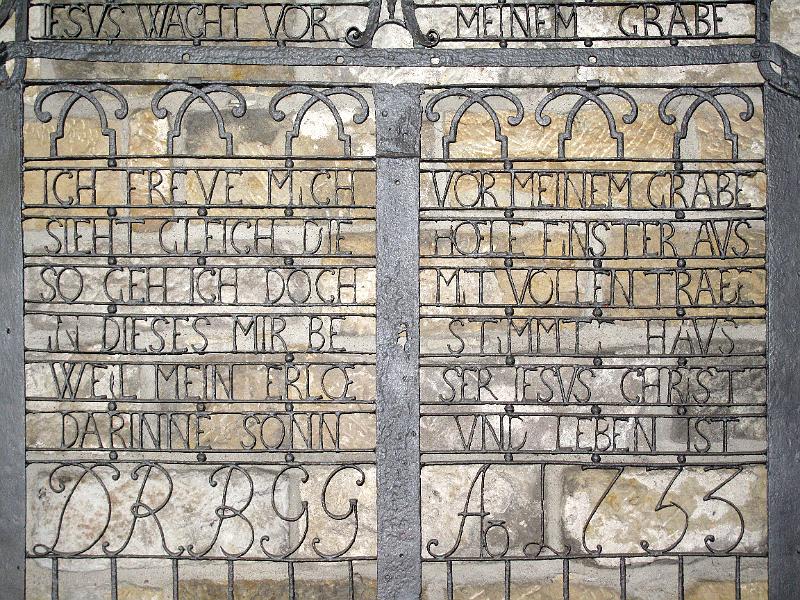 IESVS WACHT VOR MEINEM GRABE
ICH FREVE MICH VOR MEINEM GRABE
SIEHT GLEICH DIE HOLE FINSTER AVS
SO GEH ICH DOCH MIT VOLLEN TRABE
IN DIESES MIR BE STIMMT HAVS
WEIL MEIN ERLOE SER IESVS CHRIST
DARINNE SONN VND LEBEN IST
DRBGG Ao 1733